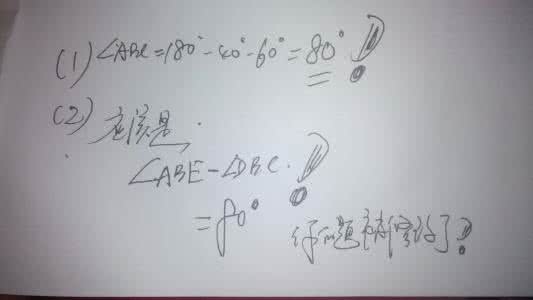 (1) ∠ABC=180°-40°-60°=80°!
(2) 应该是.
∠ABE-∠DBC.!
=80°
你问题